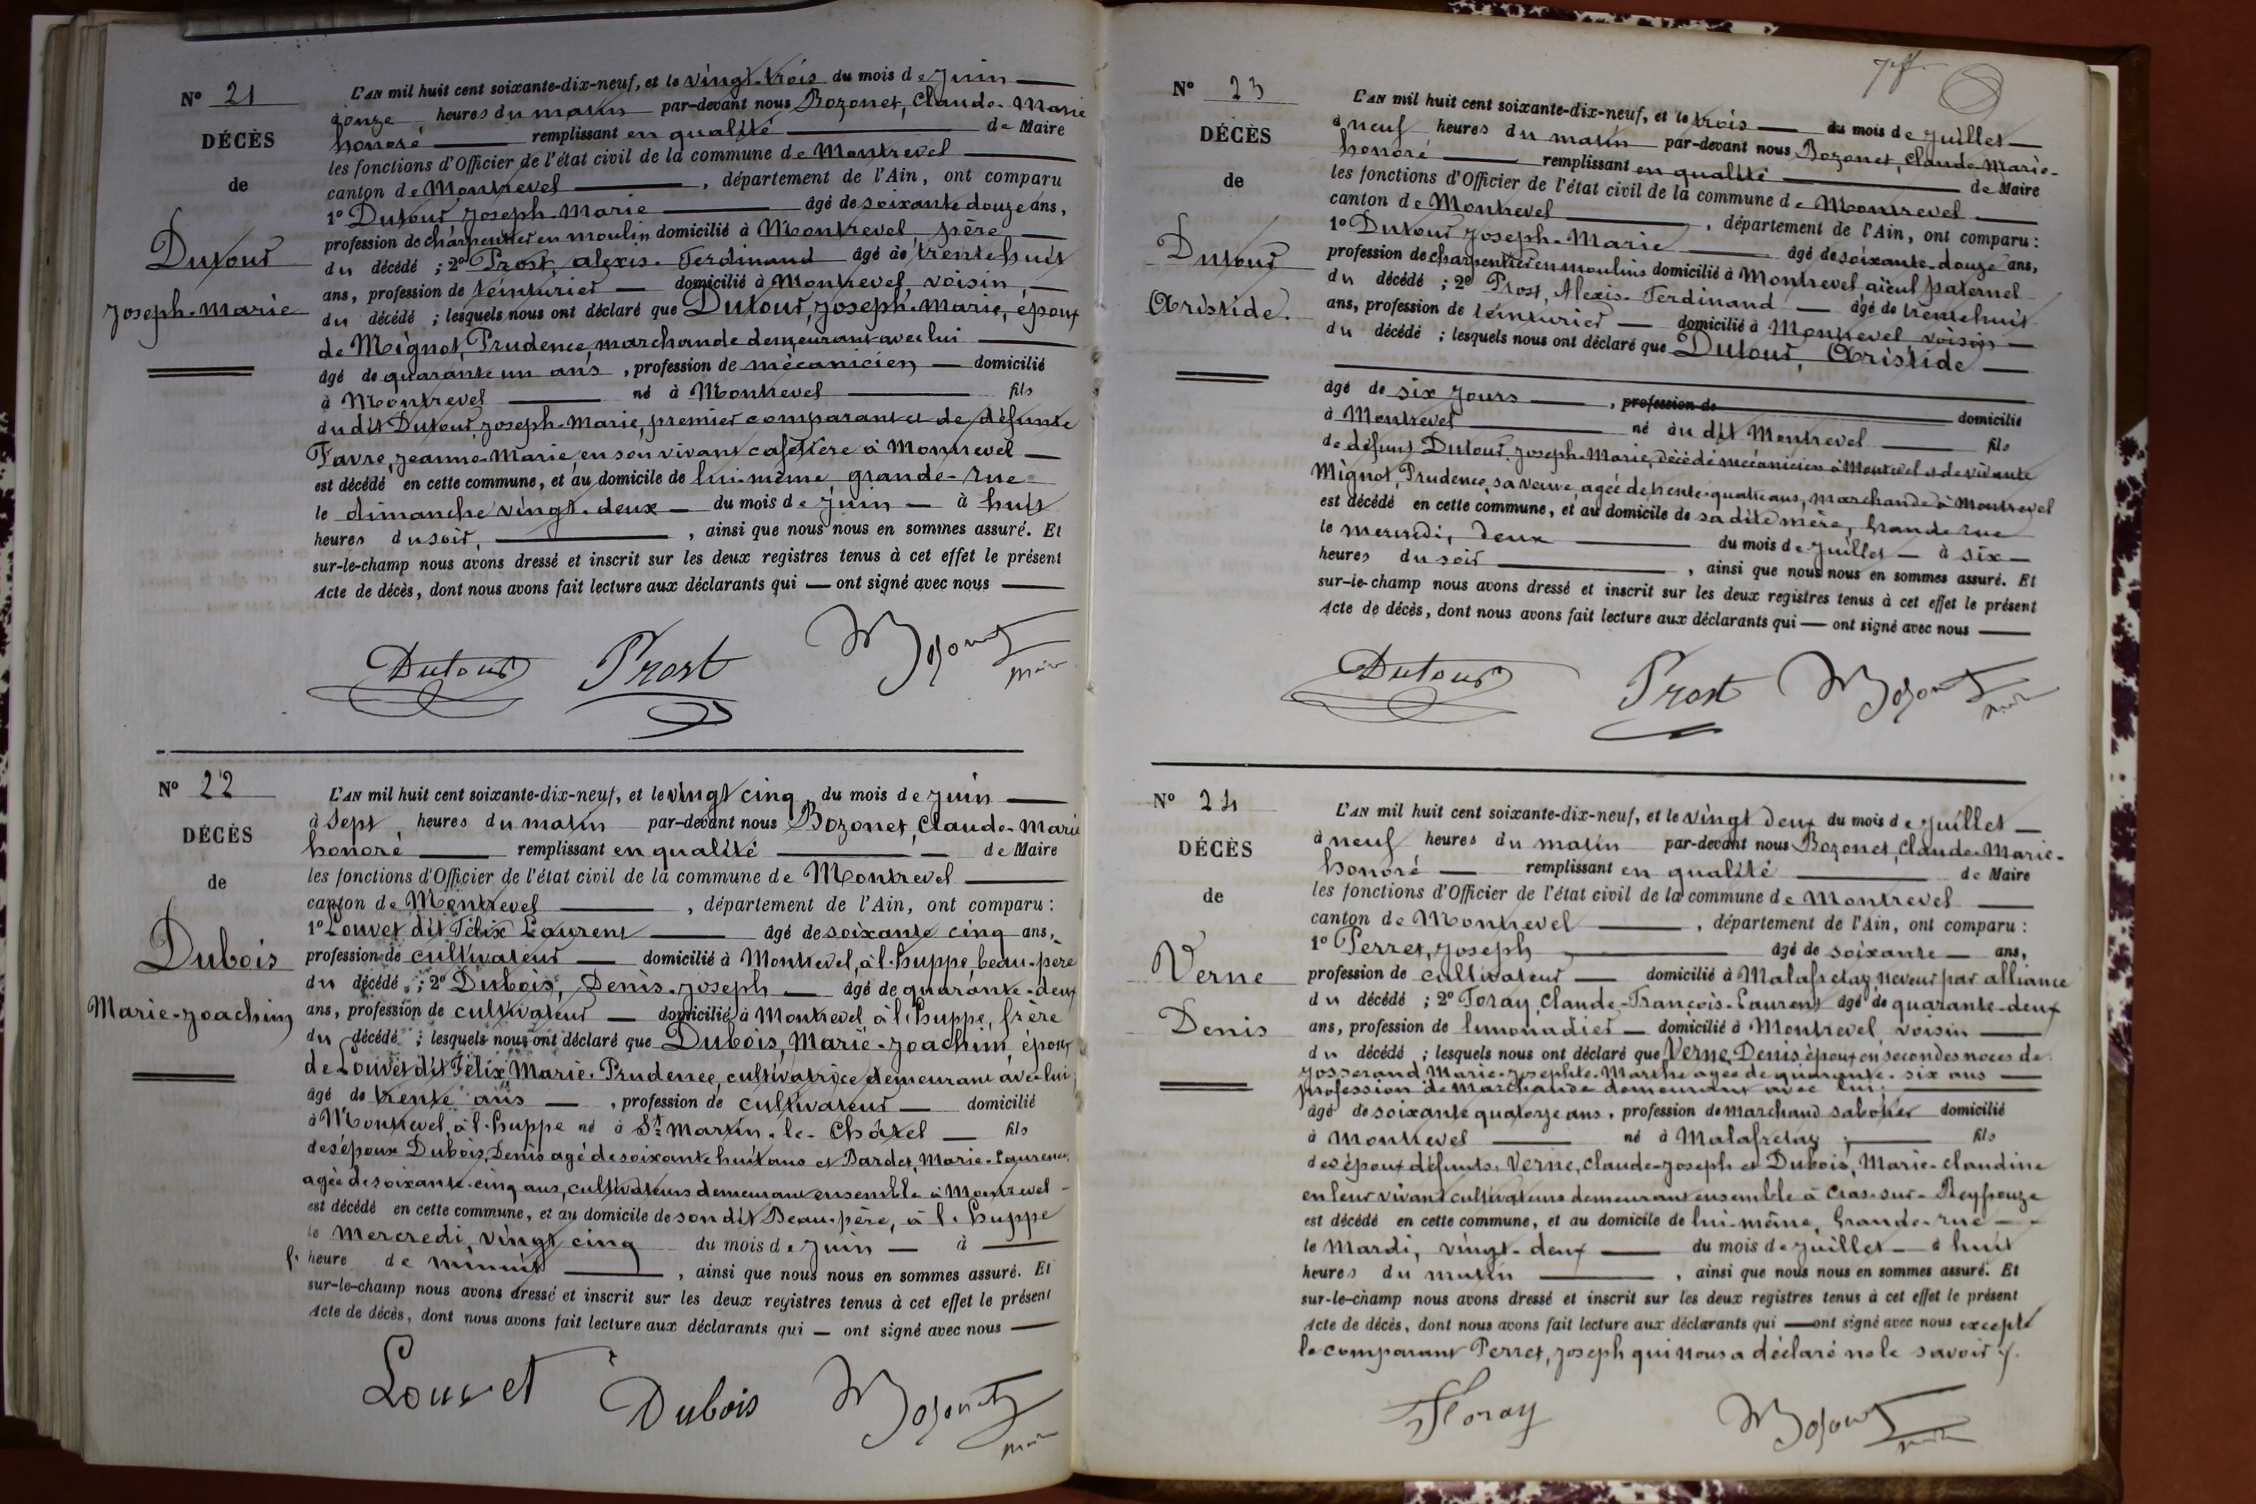 N° 21
DÉCÈS
de
Dutour
Joseph-Marie
L'AN mil huit cent soixante-dix-neuf, et le vingt-trois du mois de Juin
à onze heures du matin par-devant nous Bozonet, Claude-Marie
honoré remplissant en qualité de Maire
les fonctions d'Officier de l'état civil de la commune de Montrevel
canton de Montrevel, département de l'Ain, ont comparu
1° Dutour Joseph-Marie âgé de soixante douze ans,
profession de charpentier en moulin domicilié à Montrevel père
du décédé ; 2° Prost, alexis-Ferdinand âgé de trente huit
ans, profession de teinturier domicilié à Montrevel voisin,
du décédé ; lesquels nous ont déclaré que Dutour, Joseph-Marie, époux
de Mignot, Prudence, marchande demeurant avec lui
âgé de quarante un ans, profession de mécanicien domicilié
à Montrevel né à Montrevel fils
du dit Dutour, Joseph-Marie, premier comparant et de défunte
Favre, Jeanne-Marie, en son vivant cafetière à Montrevel
est décédé en cette commune, et au domicile de lui-même, grande-Rue
le dimanche vingt-deux du mois de Juin à huit
heures du soir, ainsi que nous nous en sommes assuré. Et
sur-le-champ nous avons dressé et inscrit sur les deux registres tenus à cet effet le présent
Acte de décès, dont nous avons fait lecture aux déclarants qui ont signé avec nous
Dutour Prost Bozonet
maire
N° 22
DÉCÈS
de
Dubois
Marie-Joachim
L'AN mil huit cent soixante-dix-neuf, et le vingt cinq du mois de Juin
à Sept heures du matin par-devant nous Bozonet, Claude-Marie
honoré remplissant en qualité de Maire
les fonctions d'Officier de l'état civil de la commune de Montrevel
canton de Montrevel, département de l'Ain, ont comparu :
1° Louvet dit Félix Laurent âgé de soixante cinq ans,
profession de cultivateur domicilié à Montrevel, à l'huppe, beau-père
du décédé ; 2° Dubois, Denis-Joseph âgé de quarante-deux
ans, profession de cultivateur domicilié à Montrevel à l'huppe, frère
du décédé ; lesquels nous ont déclaré que Dubois, Marie-Joachim, époux
de Louvet dit Félix Marie-Prudence, cultivatrice demeurant avec lui
âgé de trente ans, profession de cultivateur domicilié
à Montrevel, à l'huppe né à St Martin-le-Châtel fils
des époux Dubois, Denis agé de soixante huit ans et Bardet, Marie-Laurence,
agée de soixante-cinq ans, cultivateurs demeurant ensemble à Montrevel
est décédé en cette commune, et au domicile de son dit Beau-père, à l'huppe
le mercredi, vingt cinq du mois de Juin à
l'heure de minuit, ainsi que nous nous en sommes assuré. Et
sur-le-champ nous avons dressé et inscrit sur les deux registres tenus à cet effet le présent
Acte de décès, dont nous avons fait lecture aux déclarants qui ont signé avec nous
Louvet Dubois Bozonet
maire
N° 23
DÉCÈS
de
Dutour
Aristide.
L'AN mil huit cent soixante-dix-neuf, et le trois du mois de Juillet
à neuf heures du matin par-devant nous Bozonet, Claude-Marie-
honoré remplissant en qualité de Maire
les fonctions d'Officier de l'état civil de la commune de Montrevel
canton de Montrevel, département de l'Ain, ont comparu :
1° Dutour Joseph-Marie âgé de soixante-douze ans,
profession de charpentier en moulins domicilié à Montrevel aïeul paternel
du décédé ; 2° Prost, Alexis-Ferdinand âgé de trente huit
ans, profession de teinturier domicilié à Montrevel voisin
du décédé ; lesquels nous ont déclaré que Dutour, Aristide
âgé de six jours, profession de domicilié
à Montrevel né au dit Montrevel fils
de défunt Dutour, Joseph-Marie, décédé mécanicien à Montrevel et de vivante
Mignot, Prudence, sa veuve, agée de trente-quatre ans, marchande à Montrevel
est décédé en cette commune, et au domicile de sa dite mère, Grande rue
le mercredi, deux du mois de Juillet à six
heures du soir, ainsi que nous nous en sommes assuré. Et
sur-le-champ nous avons dressé et inscrit sur les deux registres tenus à cet effet le présent
Acte de décès, dont nous avons fait lecture aux déclarants qui ont signé avec nous
Dutour Prost Bozonet
maire
N° 24
DÉCÈS
de
Verne
Denis
L'AN mil huit cent soixante-dix-neuf, et le vingt deux du mois de Juillet
à neuf heures du matin par-devant nous Bozonet, Claude-Marie-
honoré remplissant en qualité de Maire
les fonctions d'Officier de l'état civil de la commune de Montrevel
canton de Montrevel, département de l'Ain, ont comparu :
1° Perret, Joseph âgé de soixante ans,
profession de cultivateur domicilié à Malafretay neveu par alliance
du décédé ; 2° Foray, Claude-François-Laurent âgé de quarante-deux
ans, profession de limonadier domicilié à Montrevel voisin
du décédé ; lesquels nous ont déclaré que Verne, Denis, époux en secondes noces de
Josserand Marie-Josephte-Marthe agée de quarante-six ans
profession de Marchande demeurant avec lui.
âgé de soixante quatorze ans, profession de Marchand sabotier domicilié
à Montrevel né à Malafretay, fils
des époux défunts, Verne, Claude-Joseph et Dubois, Marie-claudine
en leur vivant cultivateurs demeurant ensemble à Cras-sur-Reyssouze
est décédé en cette commune, et au domicile de lui-même, Grande-rue
le Mardi, vingt-deux du mois de Juillet à huit
heures du matin, ainsi que nous nous en sommes assuré. Et
sur-le-champ nous avons dressé et inscrit sur les deux registres tenus à cet effet le présent
Acte de décès, dont nous avons fait lecture aux déclarants qui ont signé avec nous excepté
le comparant Perret, Joseph qui nous a déclaré ne le savoir
Foray Bozonet
maire